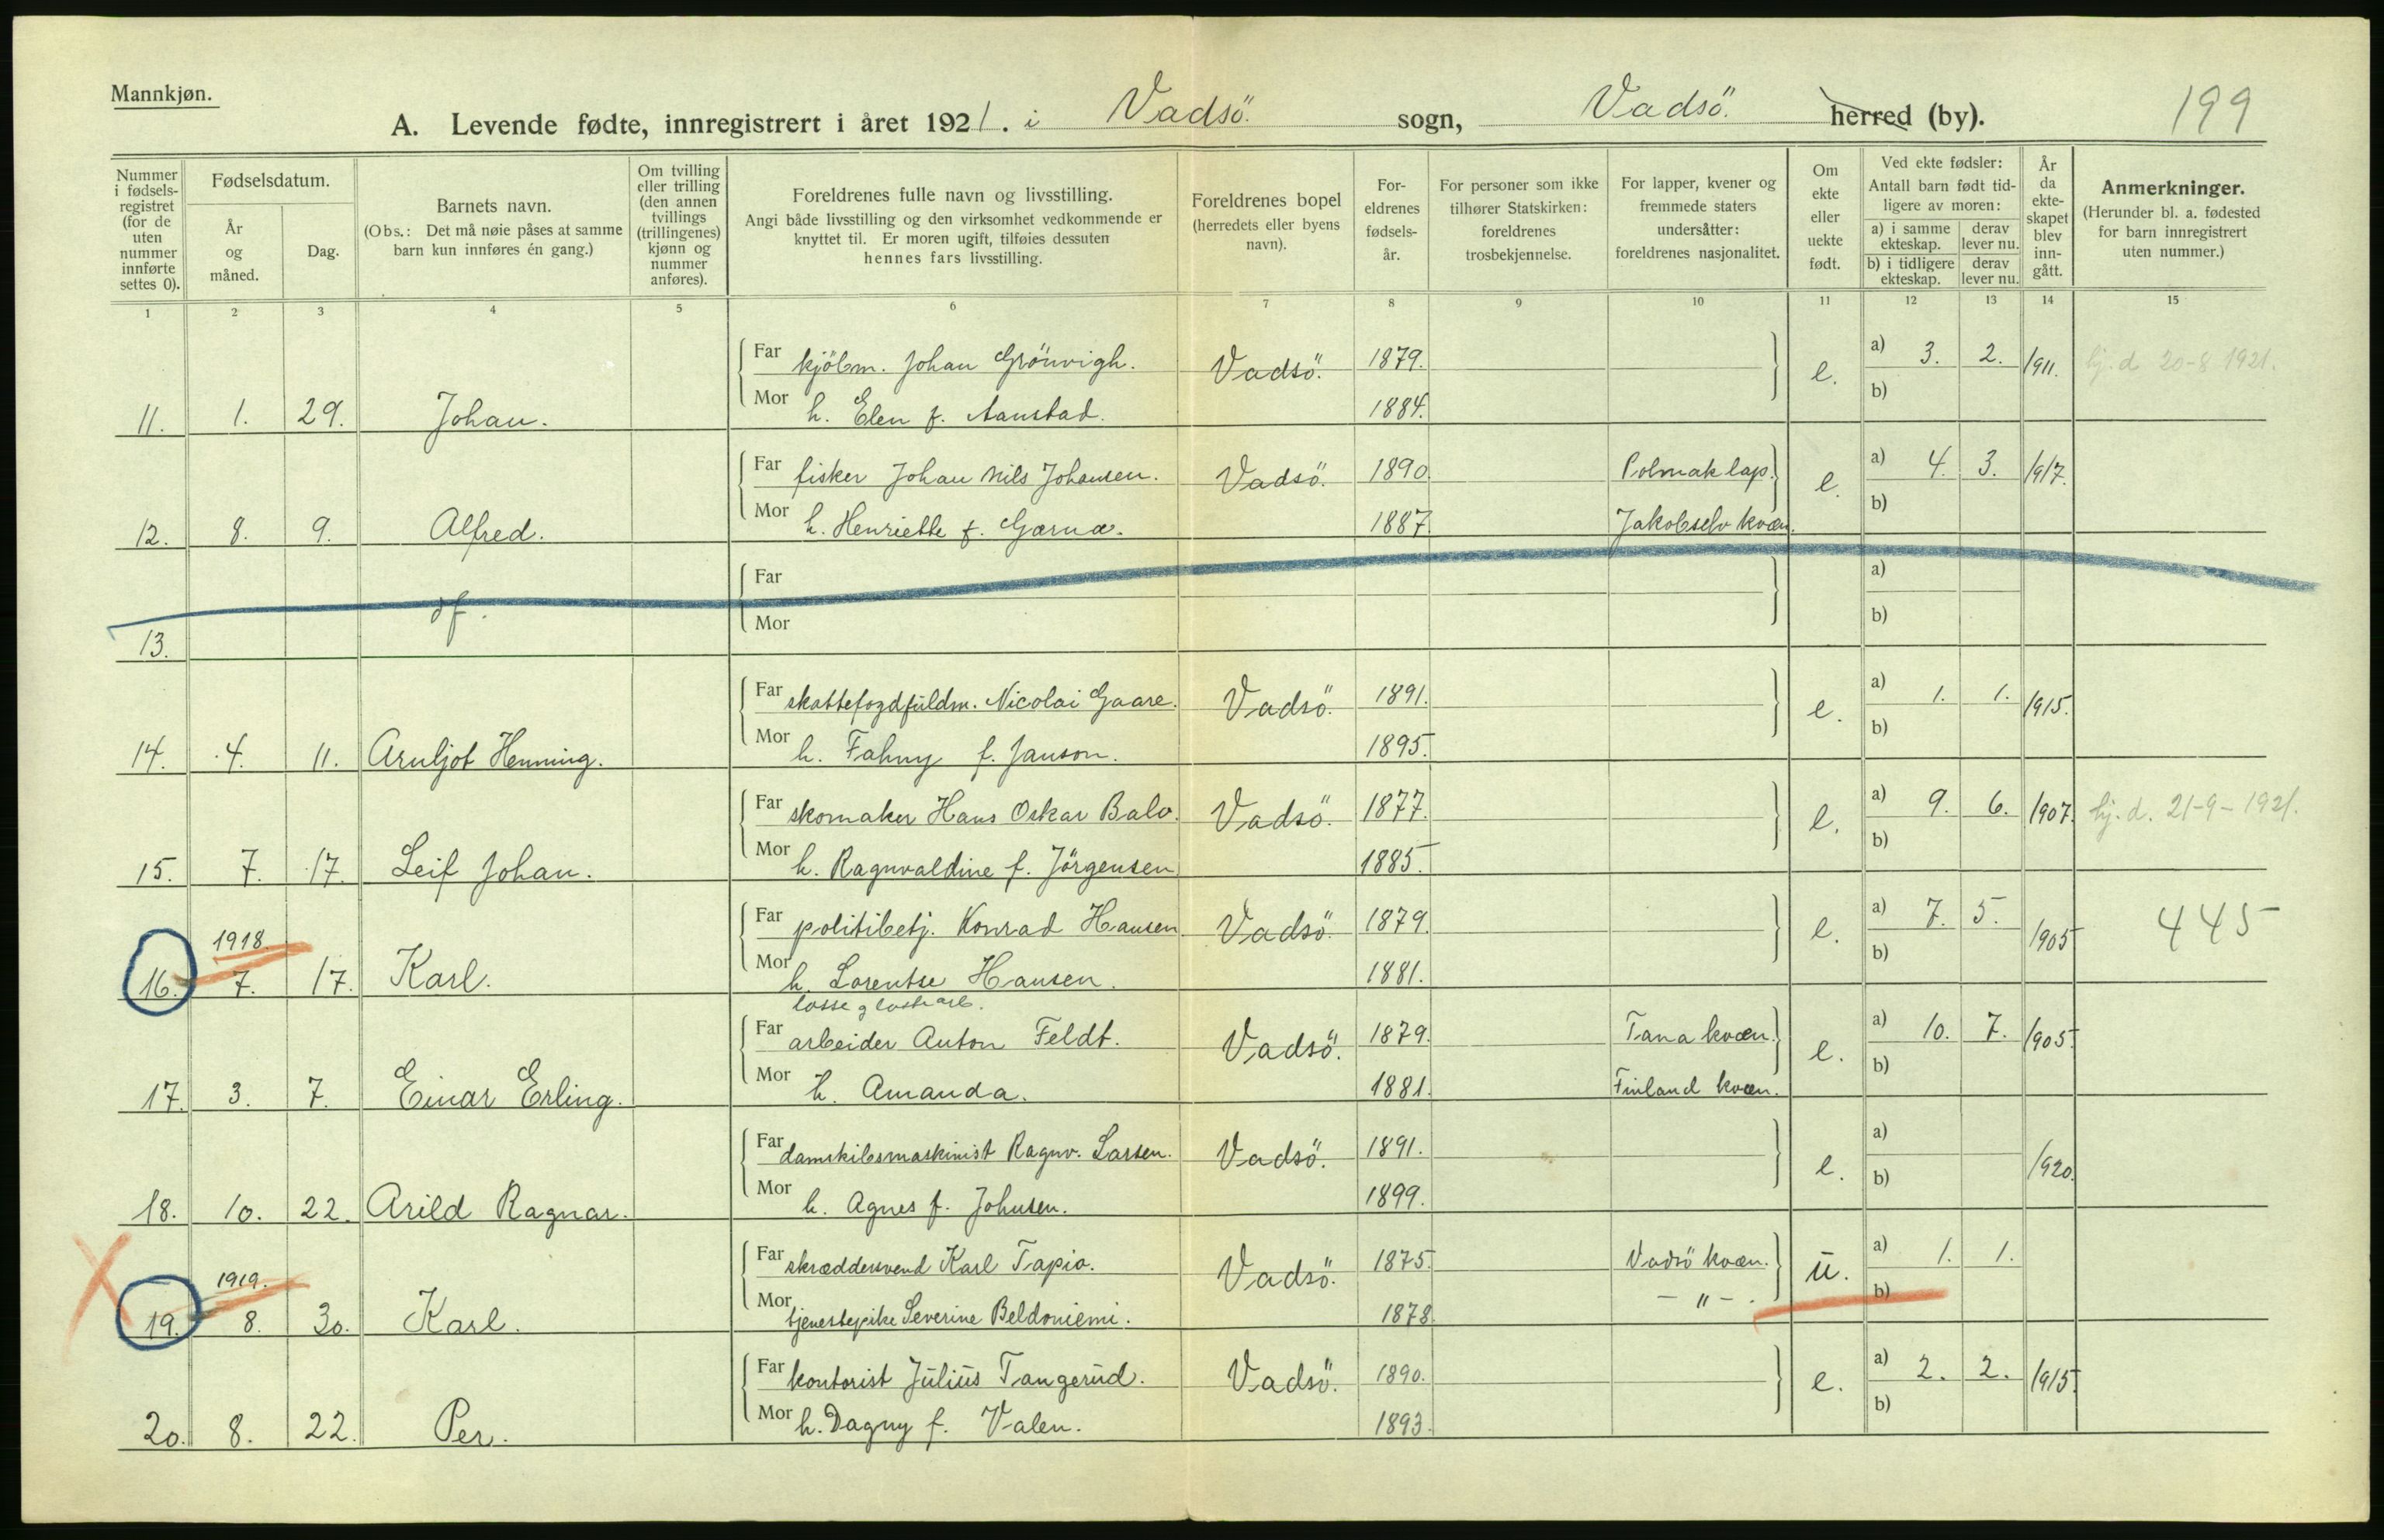 Mannkjøn.
A. Levende fødte, innregistrert i året 1921. i Vadsö. sogn, Vadsö. herred (by). 199
Nummer i fødsels-registret (for de uten nummer innførte settes 0).
Fødselsdatum.
År og måned.
Dag.
Barnets navn.
(Obs.: Det må nøie påses at samme barn kun innføres én gang.)
Om tvilling eller trilling (den annen tvillings (trillingenes) kjønn og nummer anføres).
Foreldrenes fulle navn og livsstilling.
Angi både livsstilling og den virksomhet vedkommende er knyttet til. Er moren ugift, tilføies dessuten hennes fars livsstilling.
Foreldrenes bopel (herredets eller byens navn).
For-eldrenes fødsels-år.
For personer som ikke tilhører Statskirken: foreldrenes trosbekjennelse.
For lapper, kvener og fremmede staters undersåtter: foreldrenes nasjonalitet.
Om ekte eller uekte født.
Ved ekte fødsler:
Antall barn født tid-ligere av moren:
a) i samme ekteskap. derav lever nu.
b) i tidligere ekteskap. derav lever nu.
År da ekte-skapet blev inn-gått.
Anmerkninger.
(Herunder bl. a. fødested for barn innregistrert uten nummer.)
1 2 3 4 5 6 7 8 9 10 11 12 13 14 15
Far kjöbm. Johan Grönvigh. Vadsö. 1879. e. a) 3. 2. 1911. hj.d 20-8 1921.
11. 1. 29. Johan. Mor h. Elen f. Aanstad. 1884. b)
Far fisker Johan Nils Johansen. Vadsö. 1890. Polmak lap. e. a) 4. 3. 1917.
12. 8. 9. Alfred. Mor h. Henriette f. Gærna. 1887. Jakobselv kvæn. b)
Far a)
13. df. Mor b)
Far skattefogdfuldm. Nicolai Gaare. Vadsö. 1891. e. a) 1. 1. 1915.
14. 4. 11. Arnljot Henning. Mor h. Fahny f. Janson. 1895. b)
Far skomaker Hans Oskar Balo. Vadsö. 1877. e. a) 9. 6. 1907. hj.d. 21-9-1921.
15. 7. 17. Leif Johan. Mor h. Ragnvaldine f. Jörgensen 1885. b)
Far politibetj. Konrad Hansen. Vadsö. 1879. e. a) 7. 5. 1905 445
1918.
16. 7. 17. Karl. Mor h. Lorentse Hansen. 1881. b)
losse g
Far arbeider Anton Feldt. Vadsö. 1879. Tana kvæn. e. a) 10. 7. 1905.
17. 3. 7. Einar Erling. Mor h. Amanda. 1881. Finland kvæn. b)
Far damskibsmaskinist Ragnv. Larsen. Vadsö. 1891. e. a) 1920.
18. 10. 22. Arild Ragnar. Mor h. Agnes f. Johnsen. 1899. b)
Far skræddersvend Karl Tapio. Vadsö. 1875. Vadsö kvæn. u. a) 1. 1.
1919.
X 19. 8. 30. Karl. Mor tjenestepike Severine Beldoniemi. 1878. - " - . b)
Far kontorist Julius Tangerud. Vadsö. 1890. e. a) 2. 2. 1915.
20. 8. 22. Per. Mor h. Dagny f. Valen. 1893. b)